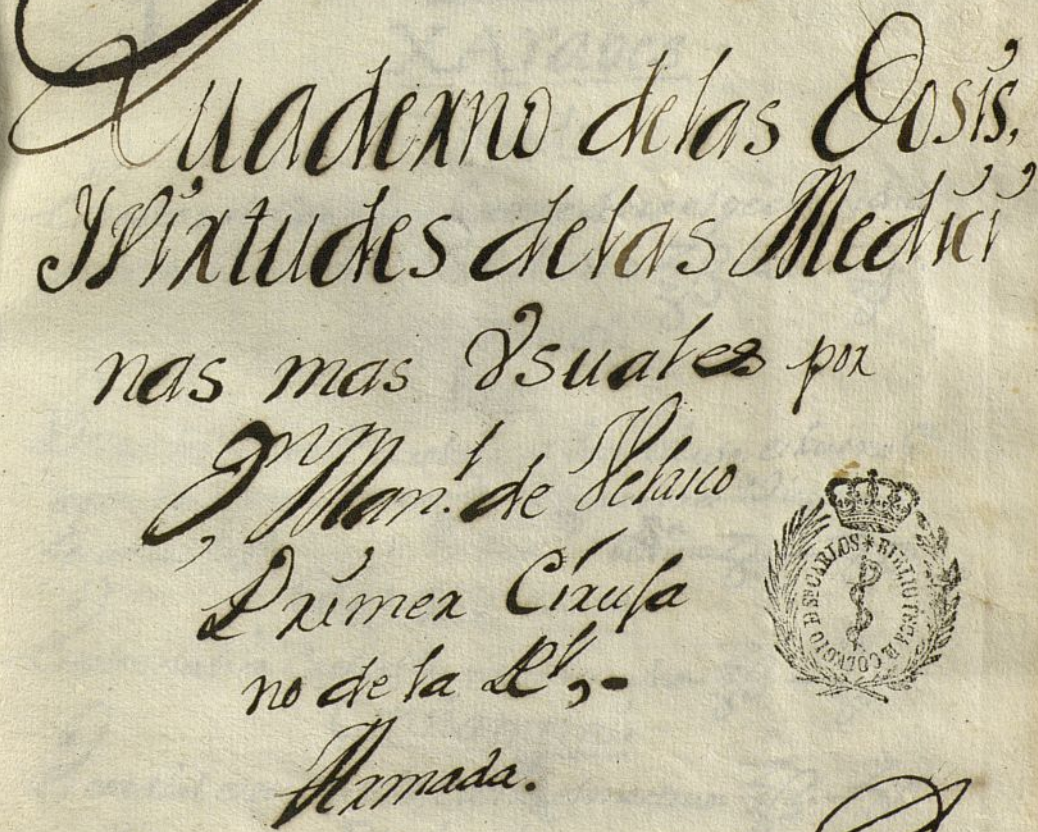 Quaderno delas Dosis,
Y Virtudes delas Medici
nas mas Vsuales por
Dn Manl. de Velasco
Primer Ciruja
no de la Rl,-
Armada.
BIBLIOTECA COLEGIO D Sn CARLOS